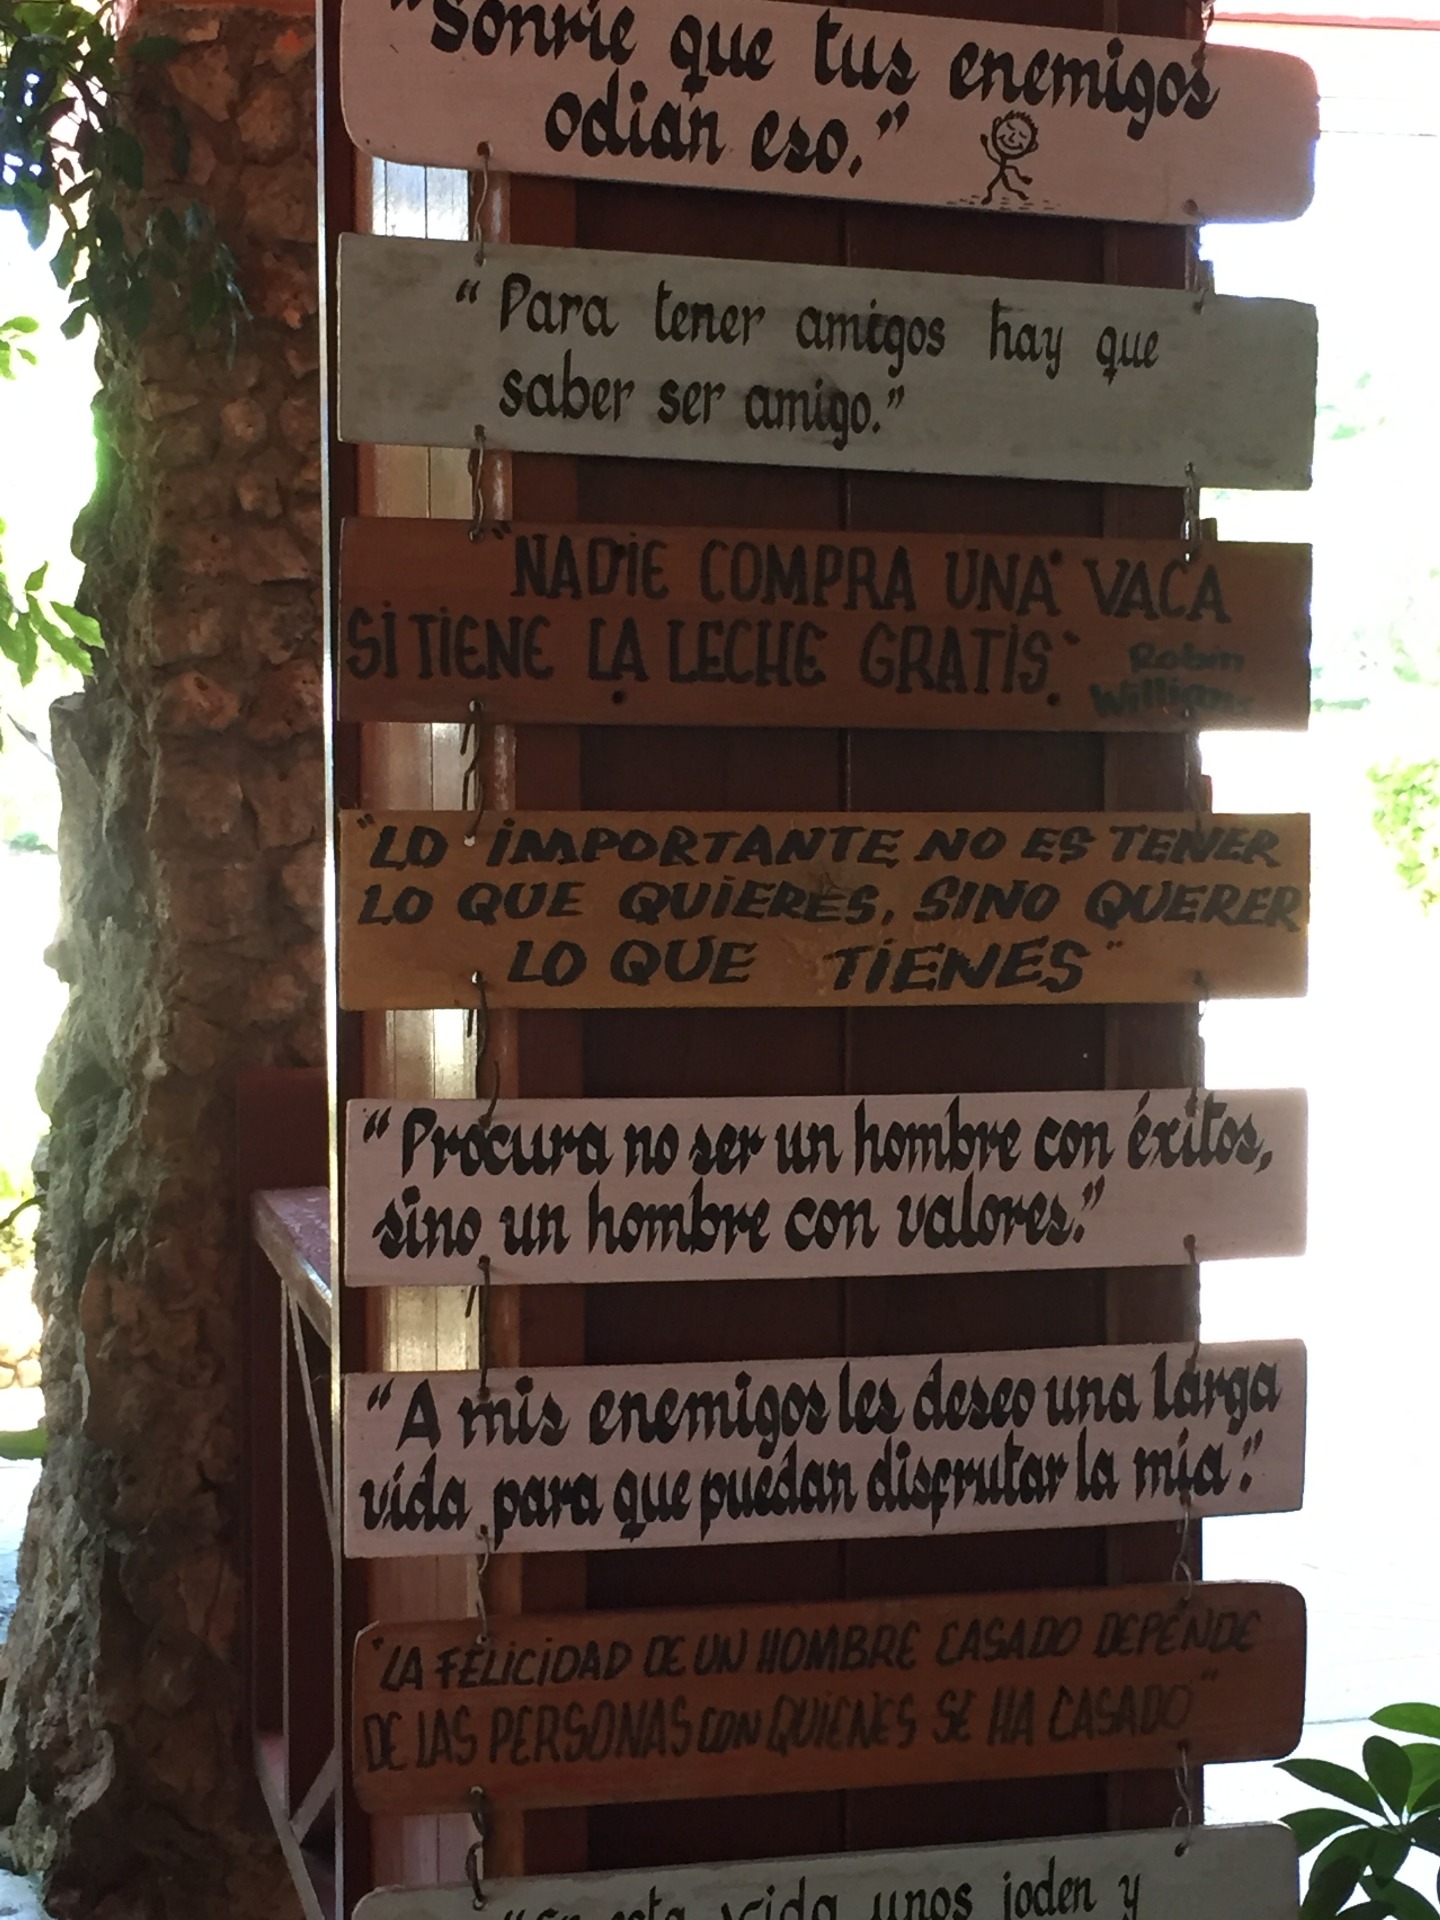 "Sonrie que tus enemigos
odian eso."
"Para tener amigos hay que
saber ser amigo."
"NADIE COMPRA UNA VACA
SI TIENE LA LECHE GRATIS.
Robin
Williams
"LO IMPORTANTE NO ES TENER
LO QUE QUIERES, SINO QUERER
LO QUE TIENES"
"Procura no ser un hombre con éxitos,
sino un hombre con valores."
"A mis enemigos les deseo una larga
vida para que puedan disfrutar la mia."
"LA FELICIDAD DE UN HOMBRE CASADO DEPENDE
DE LAS PERSONAS CON QUIENES SE HA CASADO"
"En esta vida unos joden y